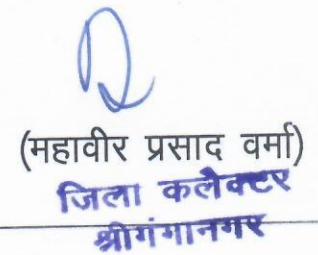 (महावीर प्रसाद वर्मा)
जिला कलेक्टर
श्रीगंगानगर